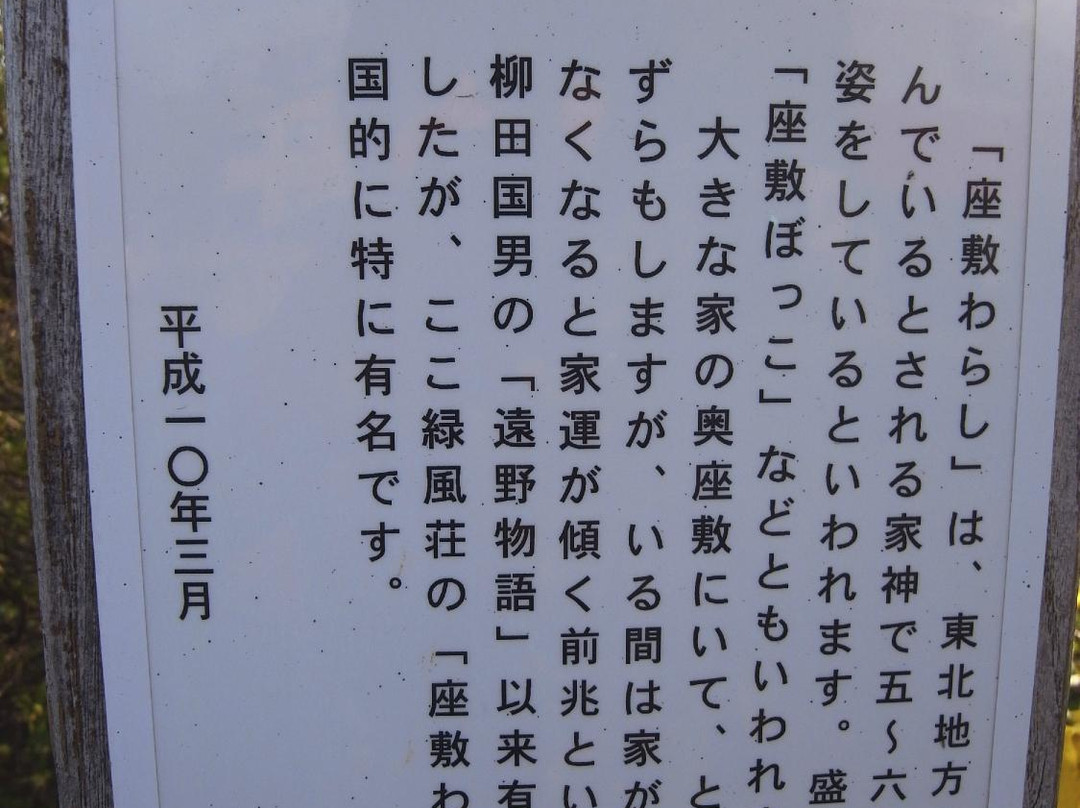 「座敷わらし」は、東北地方
んでいるとされる家神で五～六
姿をしているといわれます。盛
「座敷ぼっこ」などともいわれ
大きな家の奥座敷にいて、と
ずらもしますが、いる間は家が
なくなると家運が傾く前兆とい
柳田国男の「遠野物語」以来有
したが、ここ緑風荘の「座敷わ
国的に特に有名です。
平成一〇年三月